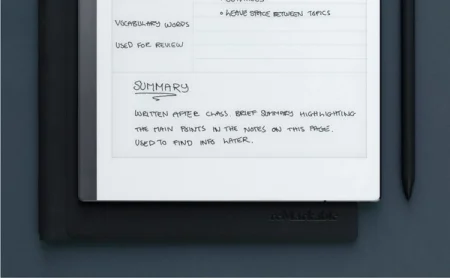 • LEAVE SPACE BETWEEN TOPICS
VOCABULARY WORDS
USED FOR REVIEW
SUMMARY
WRITTEN AFTER CLASS. BRIEF SUMMARY HIGHLIGHTING
THE MAIN POINTS IN THE NOTES ON THIS PAGE.
USED TO FIND INFO LATER.
reMarkable